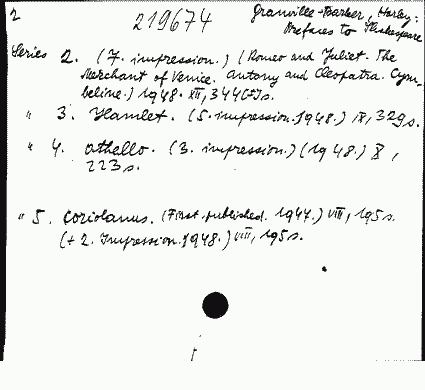 2
219674
Granville-Barker, Harley:
Prefaces to Shakespeare
Series 2. (7. impression.) (Romeo and Juliet. The
Merchant of Venice. Antony and Cleopatra. Cym-
beline.) 1948. XII, 344 s.
" 3. Hamlet. (5. impression.) 1948.) IX, 329 s.
" 4. Othello. (3. impression.) (1948.) X,
223 s.
" 5. Coriolanus. (First published. 1947.) VIII, 195 s.
(+ 2. Impression. 1948.) VIII, 195 s.